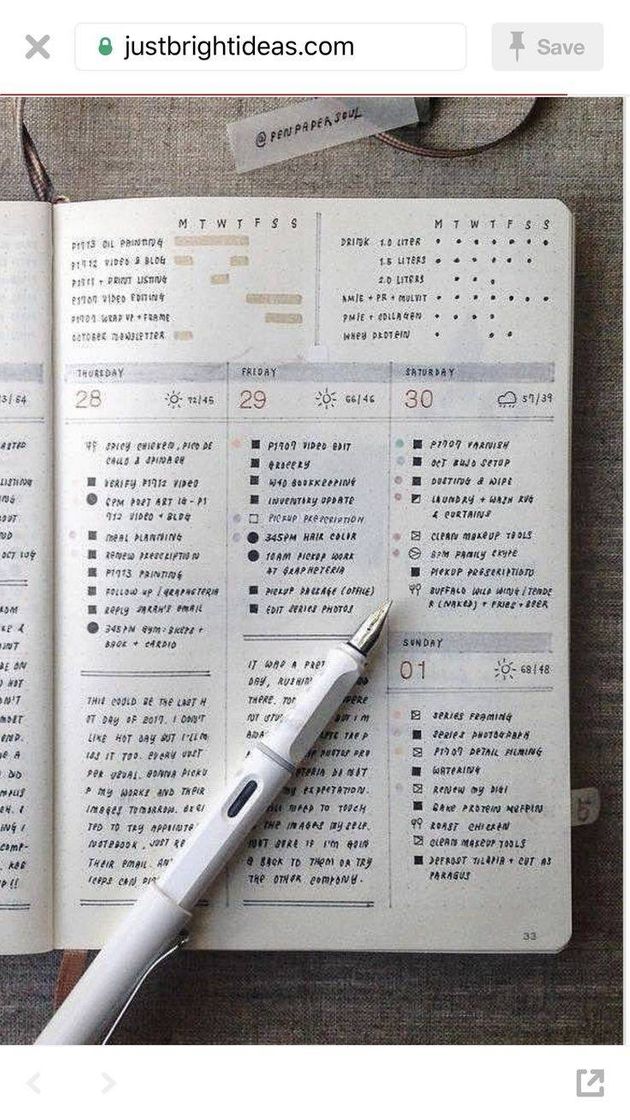 justbrightideas.com
Save
@PENPAPERSOUL
M T W T F S S
P1713 OIL PAINTING
P1712 VIDEO & BLOG
+ PRINT LISTING
P1707 VIDEO EDITING
WRAP UP + FRAME
OCTOBER NEWSLETTER
M T W T F S S
DRINK 1.0 LITER
1.5 LITERS
2.0 LITERS
+ PR + MULVIT
+ COLLAGEN
WHEY PROTEIN
THURSDAY
28 72/45
SPICY CHICKEN, PICO DE
GALLO & SPINACH
VERIFY P1712 VIDEO
6PM POST ART IG - P1
712 VIDEO + BLOG
MEAL PLANNING
RENEW PRESCRIPTION
P1713 PAINTING
FOLLOW UP / GRAPHETERIA
REPLY SARAH'S EMAIL
345PM GYM: BICEPS +
BACK + CARDIO
THIS COULD BE THE LAST H
OT DAY OF 2017. I DON'T
LIKE HOT DAY BUT I'LL M
ISS IT TOO. EVERY JUST
PER USUAL. GONNA PICKU
P MY WORKS AND THEIR
IMAGES TOMORROW. EXCI
TED TO TRY APPOINTE
NOTEBOOK. JUST
THEIR EMAIL.
CAN
FRIDAY
29 66/46
P1707 VIDEO EDIT
GROCERY
W40 BOOKKEEPING
INVENTORY UPDATE
PICKUP PRESCRIPTION
345PM HAIR COLOR
10AM PICKUP WORK
AT GRAPHETERIA
PICKUP PACKAGE (OFFICE)
EDIT SERIES PHOTOS
IT WAS A
DAY,
THERE.
BUT I'M
DO NOT
MY EXPECTATION.
NEED TO TOUCH
THE IMAGES MYSELF.
NOT SURE IF I'M GOIN
G BACK TO THEM OR TRY
THE OTHER COMPANY.
SATURDAY
30 57/39
P1707 VARNISH
OCT BUJO SETUP
DUSTING & WIPE
LAUNDRY + WASH RUG
& CURTAINS
CLEAN MAKEUP TOOLS
8PM FAMILY SKYPE
PICKUP PRESCRIPTIOTO
BUFFALO WILD WING/TENDE
R (NAKED) + FRIES + BEER
SUNDAY
01 68/48
SERIES FRAMING
SERIES PHOTOGRAPH
P1707 DETAIL FILMING
WATERING
RENEW MY DIGI
BAKE PROTEIN MUFFIN
ROAST CHICKEN
CLEAN MAKEUP TOOLS
DEFROST TILAPIA + CUT AS
PARAGUS
33